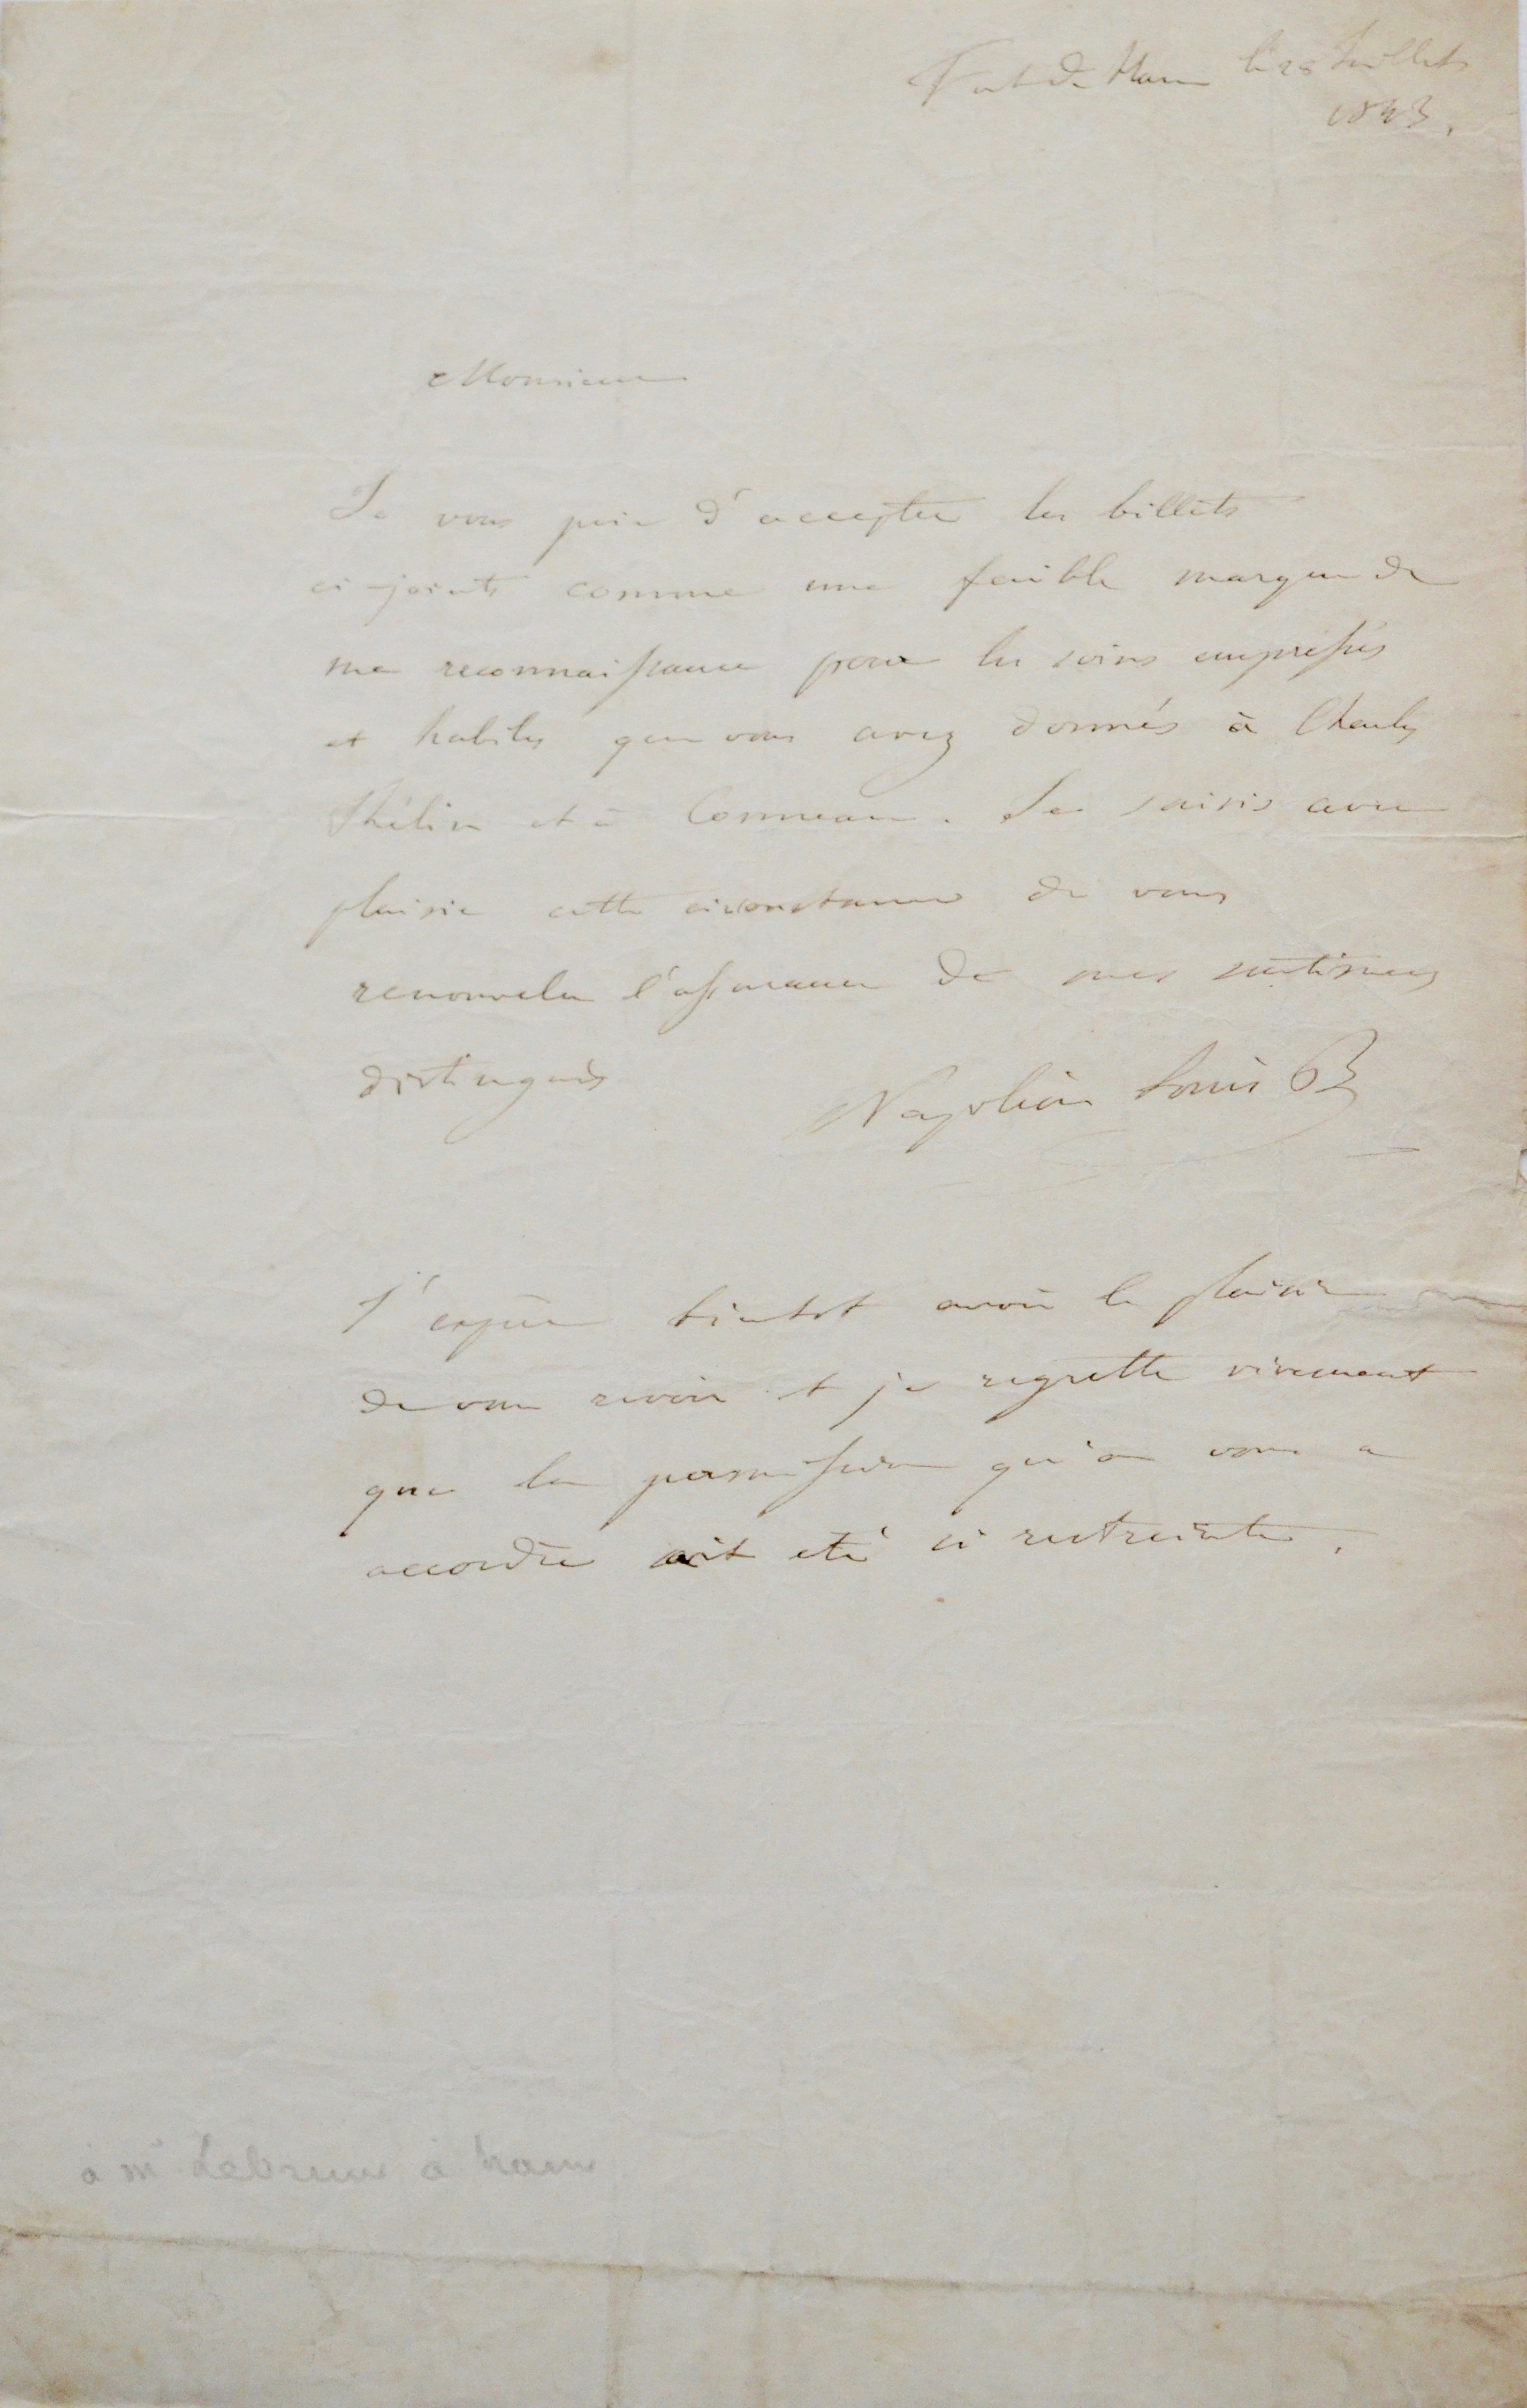 Fort de Ham le 28 Juillet
1843.
Monsieur
Je vous prie d'accepter les billets
ci-joints comme une faible marque de
ma reconnaissance pour les soins empressés
et habiles que vous avez donnés à Charles
Thélin et à Conneau. Je saisis avec
plaisir cette circonstance de vous
renouveler l'assurance de mes sentimens
distingués
Napoléon Louis B
J'espère bientot avoir le plaisir
de vous revoir et je regrette vivement
que la permission qu'on vous a
accordée ait été si restreinte.
à mr Lebrun à ham